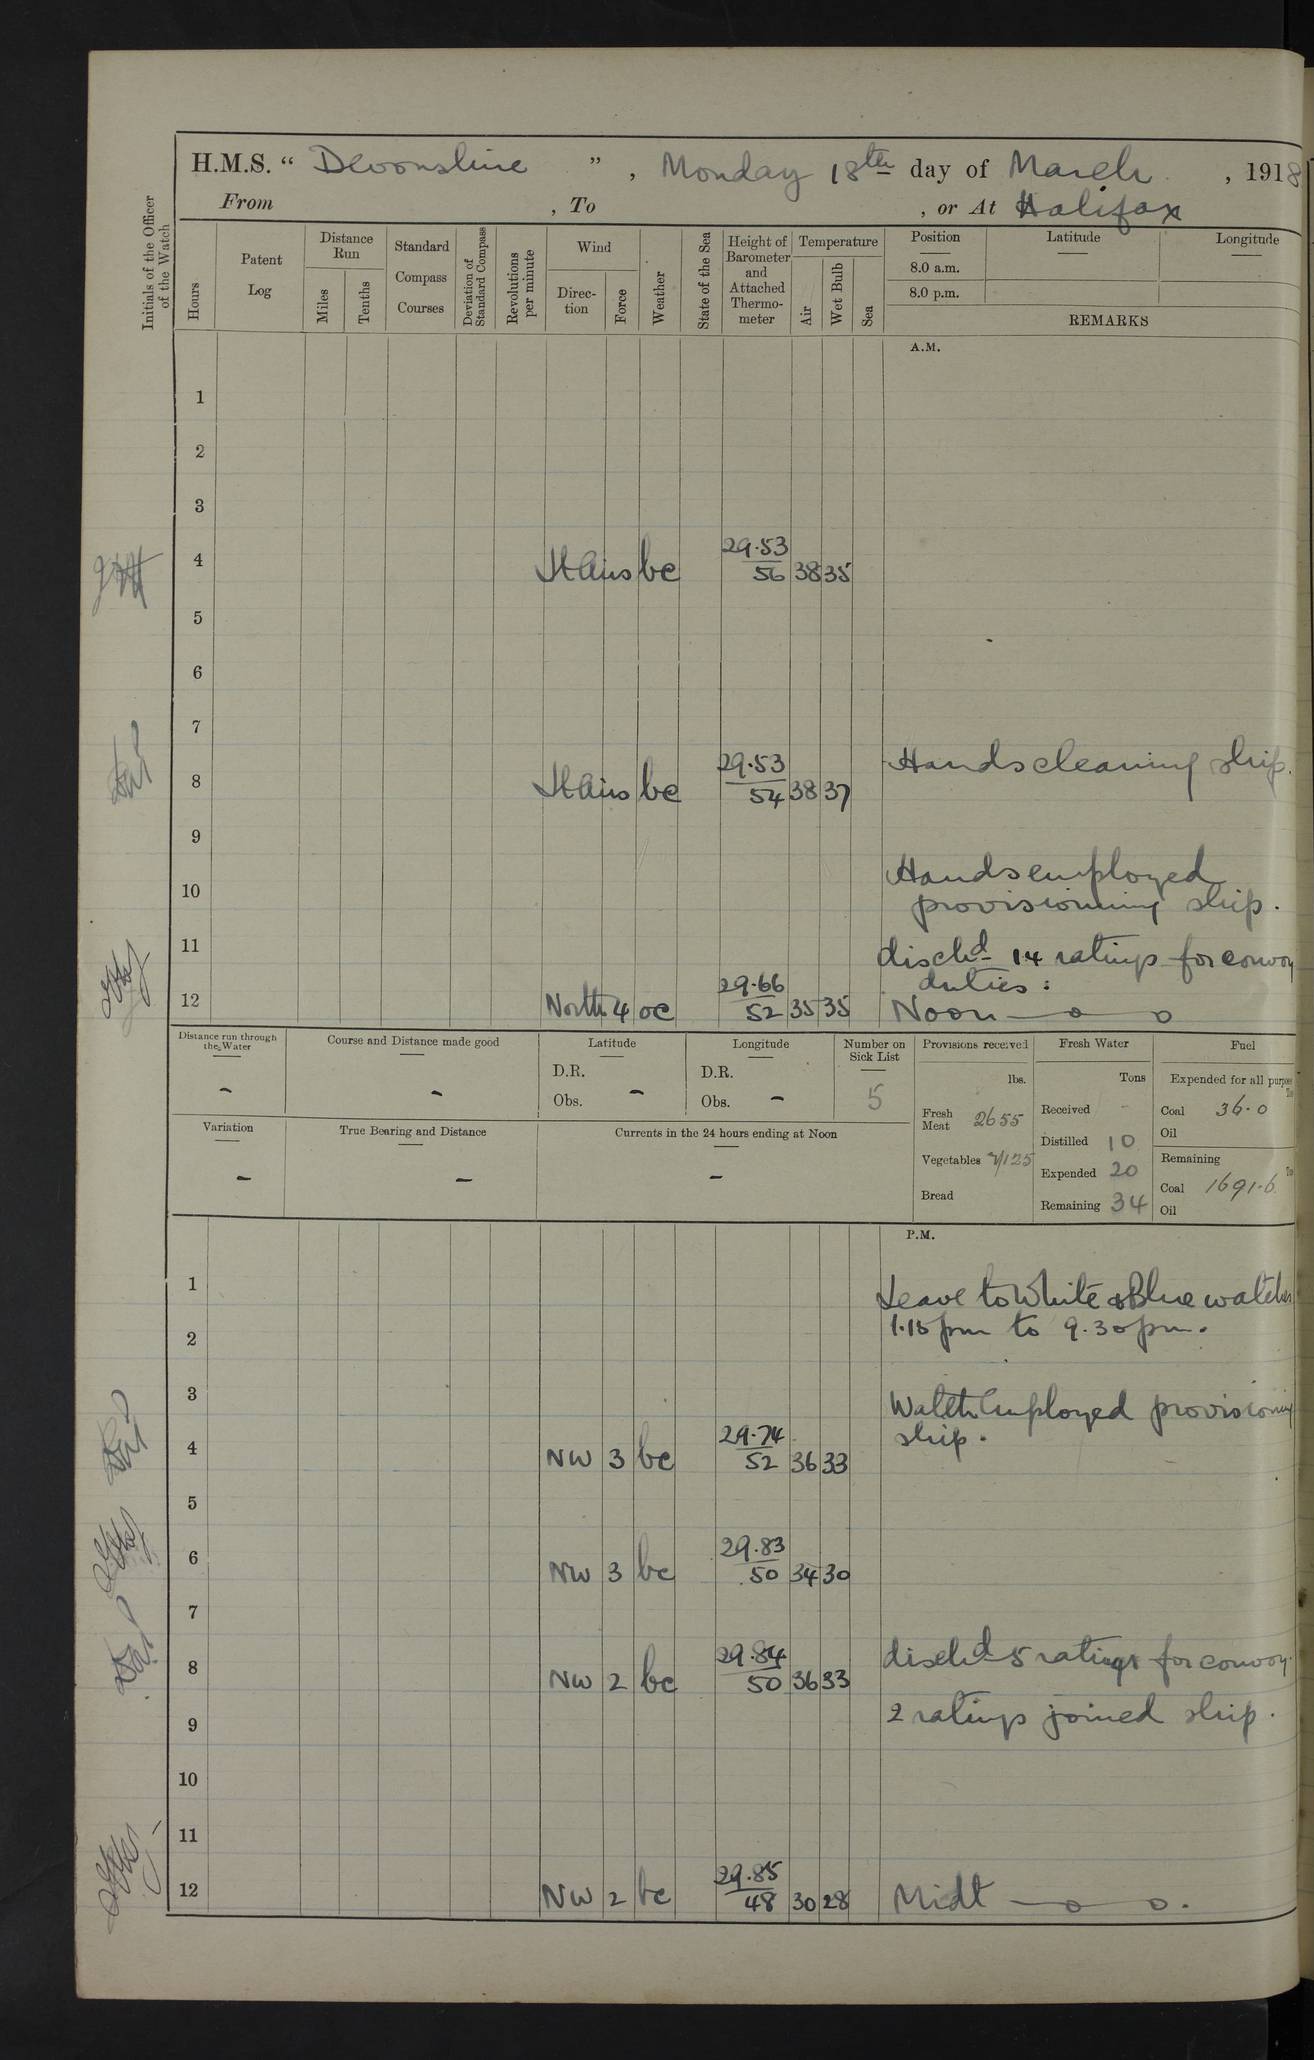 H.M.S. “ Devonshire ” , Monday 18th day of March , 1918
From , To , or At Halifax
Initials of the Officer of the Watch
Hours
Patent Log
Distance Run
Miles
Tenths
Standard Compass Courses
Deviation of Standard Compass
Revolutions per minute
Wind
Direction
Force
Weather
State of the Sea
Height of Barometer and Attached Thermometer
Temperature
Air
Wet Bulb
Sea
Position Latitude Longitude
8.0 a.m.
8.0 p.m.
REMARKS
A.M.
1
2
3
4 Lt Airs bc 29.53 56 38 35
5
6
7
Hands cleaning ship.
8 Lt Airs bc 29.53 54 38 37
9
Hands employed
10 provisioning ship.
11 dischd 14 ratings for convoy
duties :
12 North 4 oc 29.66 52 35 35 Noon
Distance run through the Water
-
Course and Distance made good
-
Latitude
D.R.
Obs. -
Longitude
D.R.
Obs. -
Number on Sick List
5
Provisions received
lbs.
Fresh Meat 2655
Vegetables
Bread
Fresh Water
Tons
Received -
Distilled 10
Expended 20
Remaining 34
Fuel
Expended for all purposes
Coal 36.0
Oil
Remaining
Coal 1691.6
Oil
Variation
-
True Bearing and Distance
-
Currents in the 24 hours ending at Noon
-
P.M.
1 Leave to White & Blue watches
2 1.15 pm to 9.30 pm.
3 Watch Employed provisioning
ship.
4 NW 3 bc 29.74 52 36 33
5
6 NW 3 bc 29.83 50 34 30
7
8 NW 2 bc 29.84 50 36 33 dischd 5 ratings for convoy.
9 2 ratings joined ship.
10
11
12 NW 2 bc 29.85 48 30 28 Midt